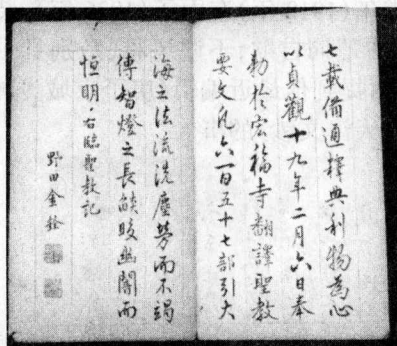 七載備通釋典利物為心
以貞觀十九年二月六日奉
勅於宏福寺翻譯聖教
要文凡六百五十七部引大
海之法流洗塵勞而不竭
傳智燈之長燄皎幽闇而
恒明。右臨聖教記
野田金銓